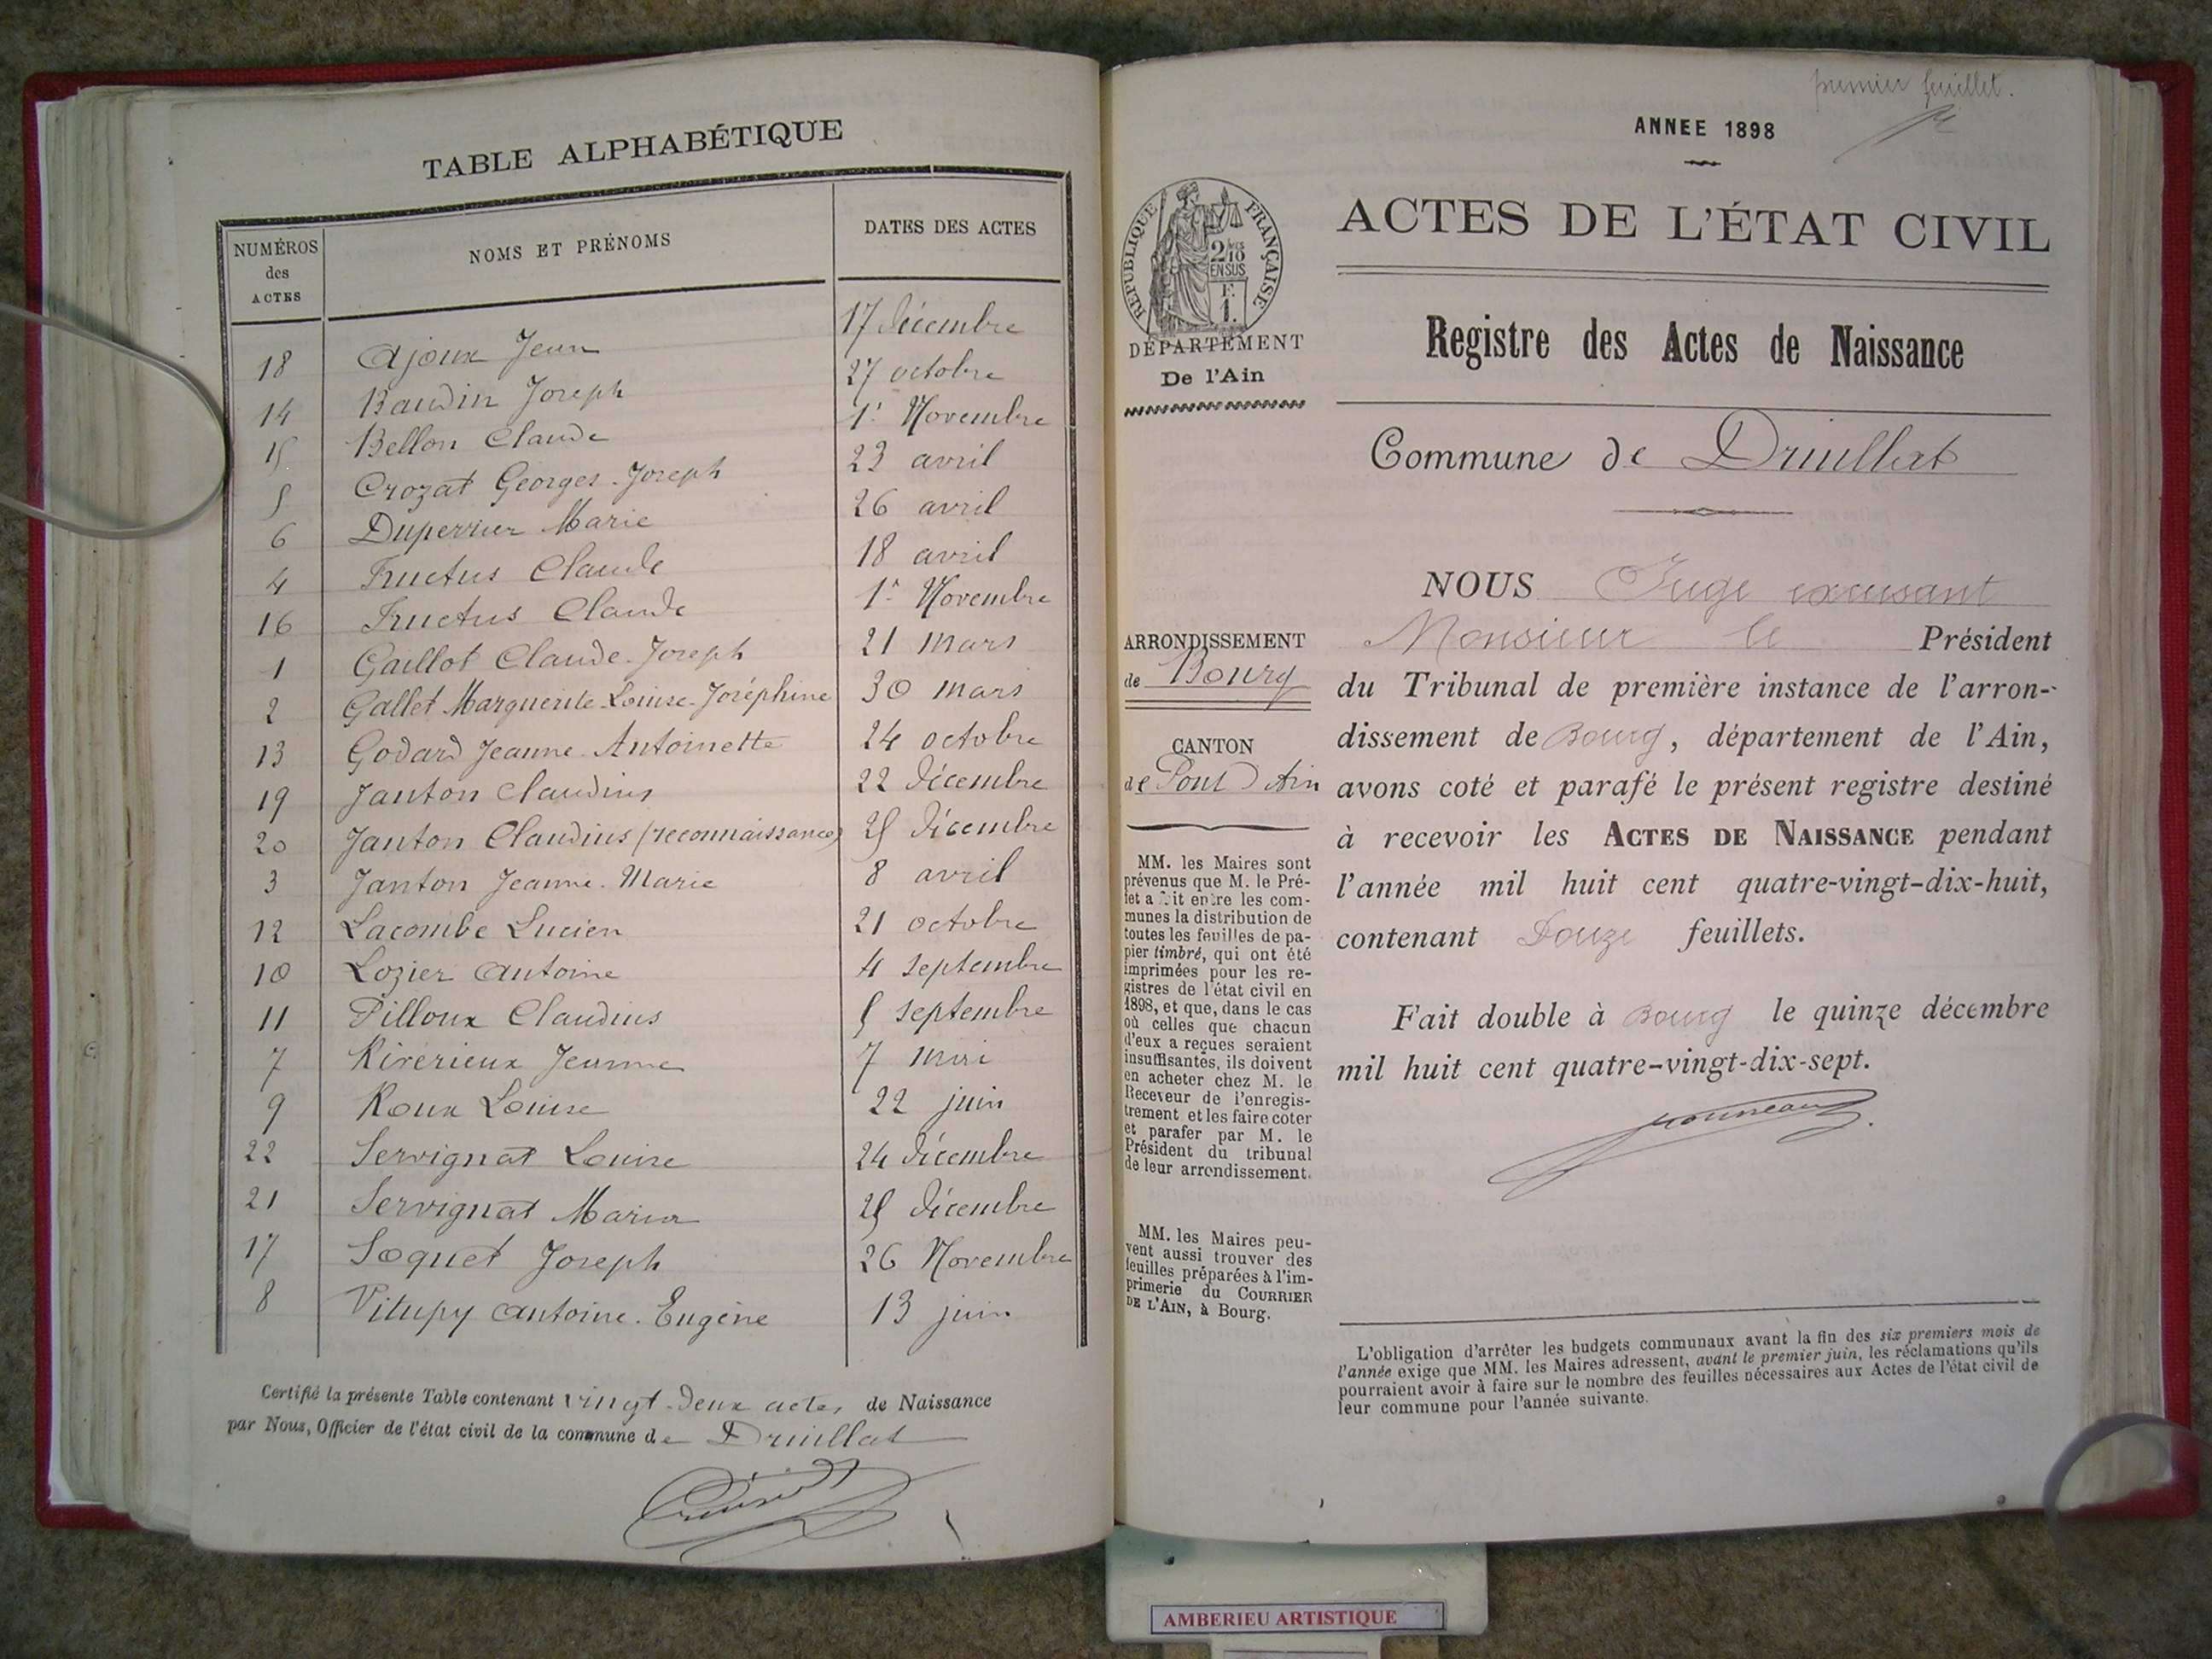 TABLE ALPHABÉTIQUE
NUMÉROS des ACTES NOMS ET PRÉNOMS DATES DES ACTES
18 Ajoux Jean 17 décembre
14 Baudin Joseph 27 octobre
15 Bellon Claude 1r Novembre
5 Crozat Georges-Joseph 23 avril
6 Duperrier Marie 26 avril
4 Fructus Claude 18 avril
16 Fructus Claude 1r Novembre
1 Gaillot Claude-Joseph 21 mars
2 Gallet Marguerite-Louise-Joséphine 30 mars
13 Godard Jeanne-Antoinette 24 octobre
19 Janton Claudius 22 décembre
20 Janton Claudius (reconnaissance) 25 décembre
3 Janton Jeanne-Marie 8 avril
12 Lacombe Lucien 21 octobre
10 Lozier Antoine 4 septembre
11 Pilloux Claudius 5 septembre
7 Rivérieux Jeanne 7 mai
9 Roux Louise 22 juin
22 Servignat Louise 24 décembre
21 Servignat Maria 25 décembre
17 Soquet Joseph 26 Novembre
8 Vitupy Antoine-Eugène 13 juin
Certifié la présente Table contenant vingt-deux actes de Naissance
par Nous, Officier de l'état civil de la commune de Druillat
premier feuillet.
ANNEE 1898
RÉPUBLIQUE FRANÇAISE
2/10 EN SUS
F. 1.
DÉPARTEMENT
De l'Ain
ACTES DE L'ÉTAT CIVIL
Registre des Actes de Naissance
Commune de Druillat
ARRONDISSEMENT
de Bourg
CANTON
de Pont d'Ain
MM. les Maires sont
prévenus que M. le Pré-
fet a fait entre les com-
munes la distribution de
toutes les feuilles de pa-
pier timbré, qui ont été
imprimées pour les re-
gistres de l'état civil en
1898, et que, dans le cas
où celles que chacun
d'eux a reçues seraient
insuffisantes, ils doivent
en acheter chez M. le
Receveur de l'enregis-
trement et les faire coter
et parafer par M. le
Président du tribunal
de leur arrondissement.
MM. les Maires peu-
vent aussi trouver des
feuilles préparées à l'im-
primerie du COURRIER
DE L'AIN, à Bourg.
NOUS Juge excusant
Monsieur le Président
du Tribunal de première instance de l'arron-
dissement de Bourg, département de l'Ain,
avons coté et parafé le présent registre destiné
à recevoir les ACTES DE NAISSANCE pendant
l'année mil huit cent quatre-vingt-dix-huit,
contenant Douze feuillets.
Fait double à Bourg le quinze décembre
mil huit cent quatre-vingt-dix-sept.
L'obligation d'arrêter les budgets communaux avant la fin des six premiers mois de
l'année exige que MM. les Maires adressent, avant le premier juin, les réclamations qu'ils
pourraient avoir à faire sur le nombre des feuilles nécessaires aux Actes de l'état civil de
leur commune pour l'année suivante.
AMBERIEU ARTISTIQUE